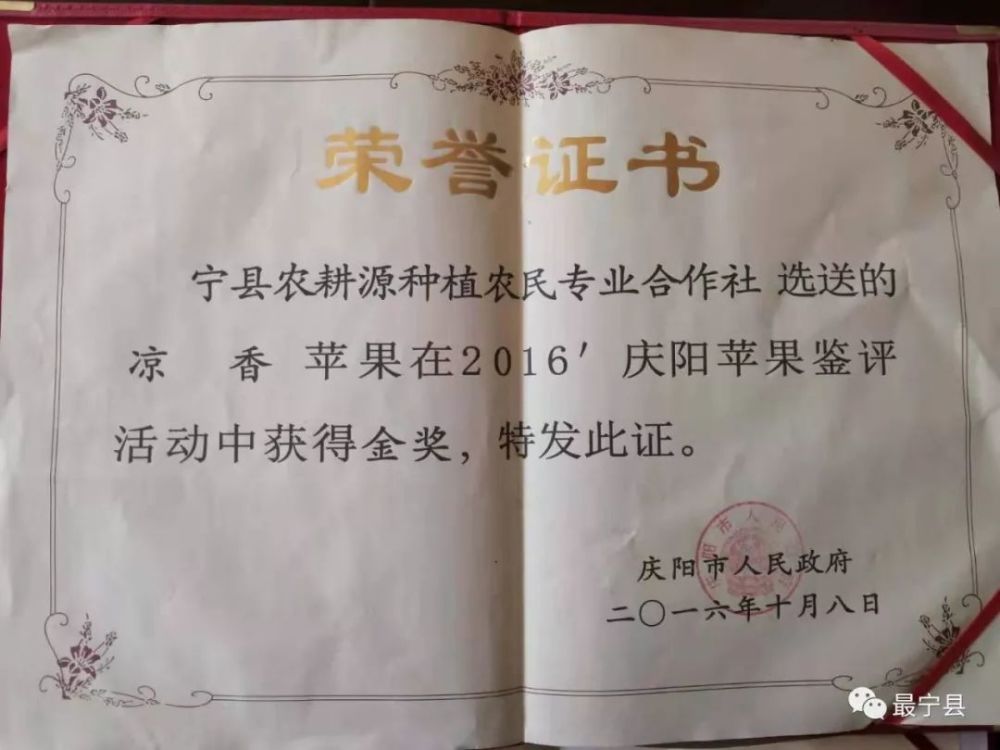 荣誉证书
宁县农耕源种植农民专业合作社 选送的
凉 香 苹果在2016′庆阳苹果鉴评
活动中获得金奖，特发此证。
庆阳市人民政府
二〇一六年十月八日
最宁县